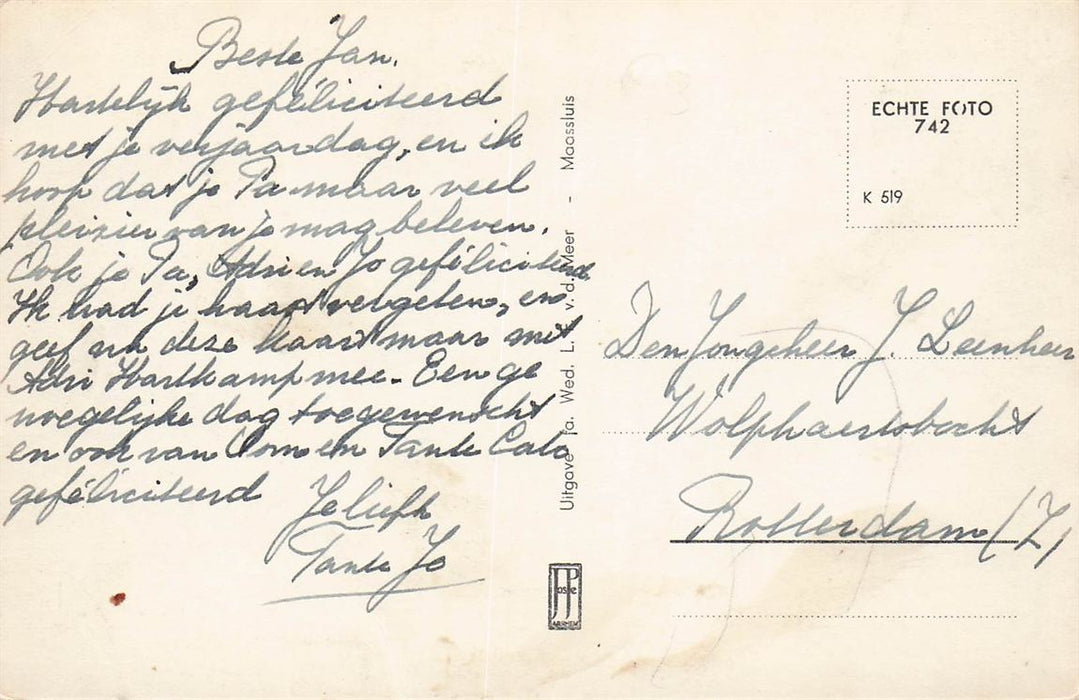 Beste Jan.
Hartelijk geféliciteerd
met je verjaardag, en ik
hoop dat je Pa maar veel
pleizier van je mag beleven.
Ook je Pa, Adri en Jo geféliciteerd.
Ik had je haast vergeten, en
geef nu deze kaart maar met
Adri Hartkamp mee. Een ge
noegelijke dag toegewenscht
en ook van Oom en Tante Cato
geféliciteerd
Je liefh
Tante Jo
Uitgave fa. Wed. L. E. v. d. Meer - Maassluis
JosPé
ARNHEM
ECHTE FOTO
742
K 519
Den Jongeheer J. Leenheer
Wolphaertsbocht
Rotterdam (Z)